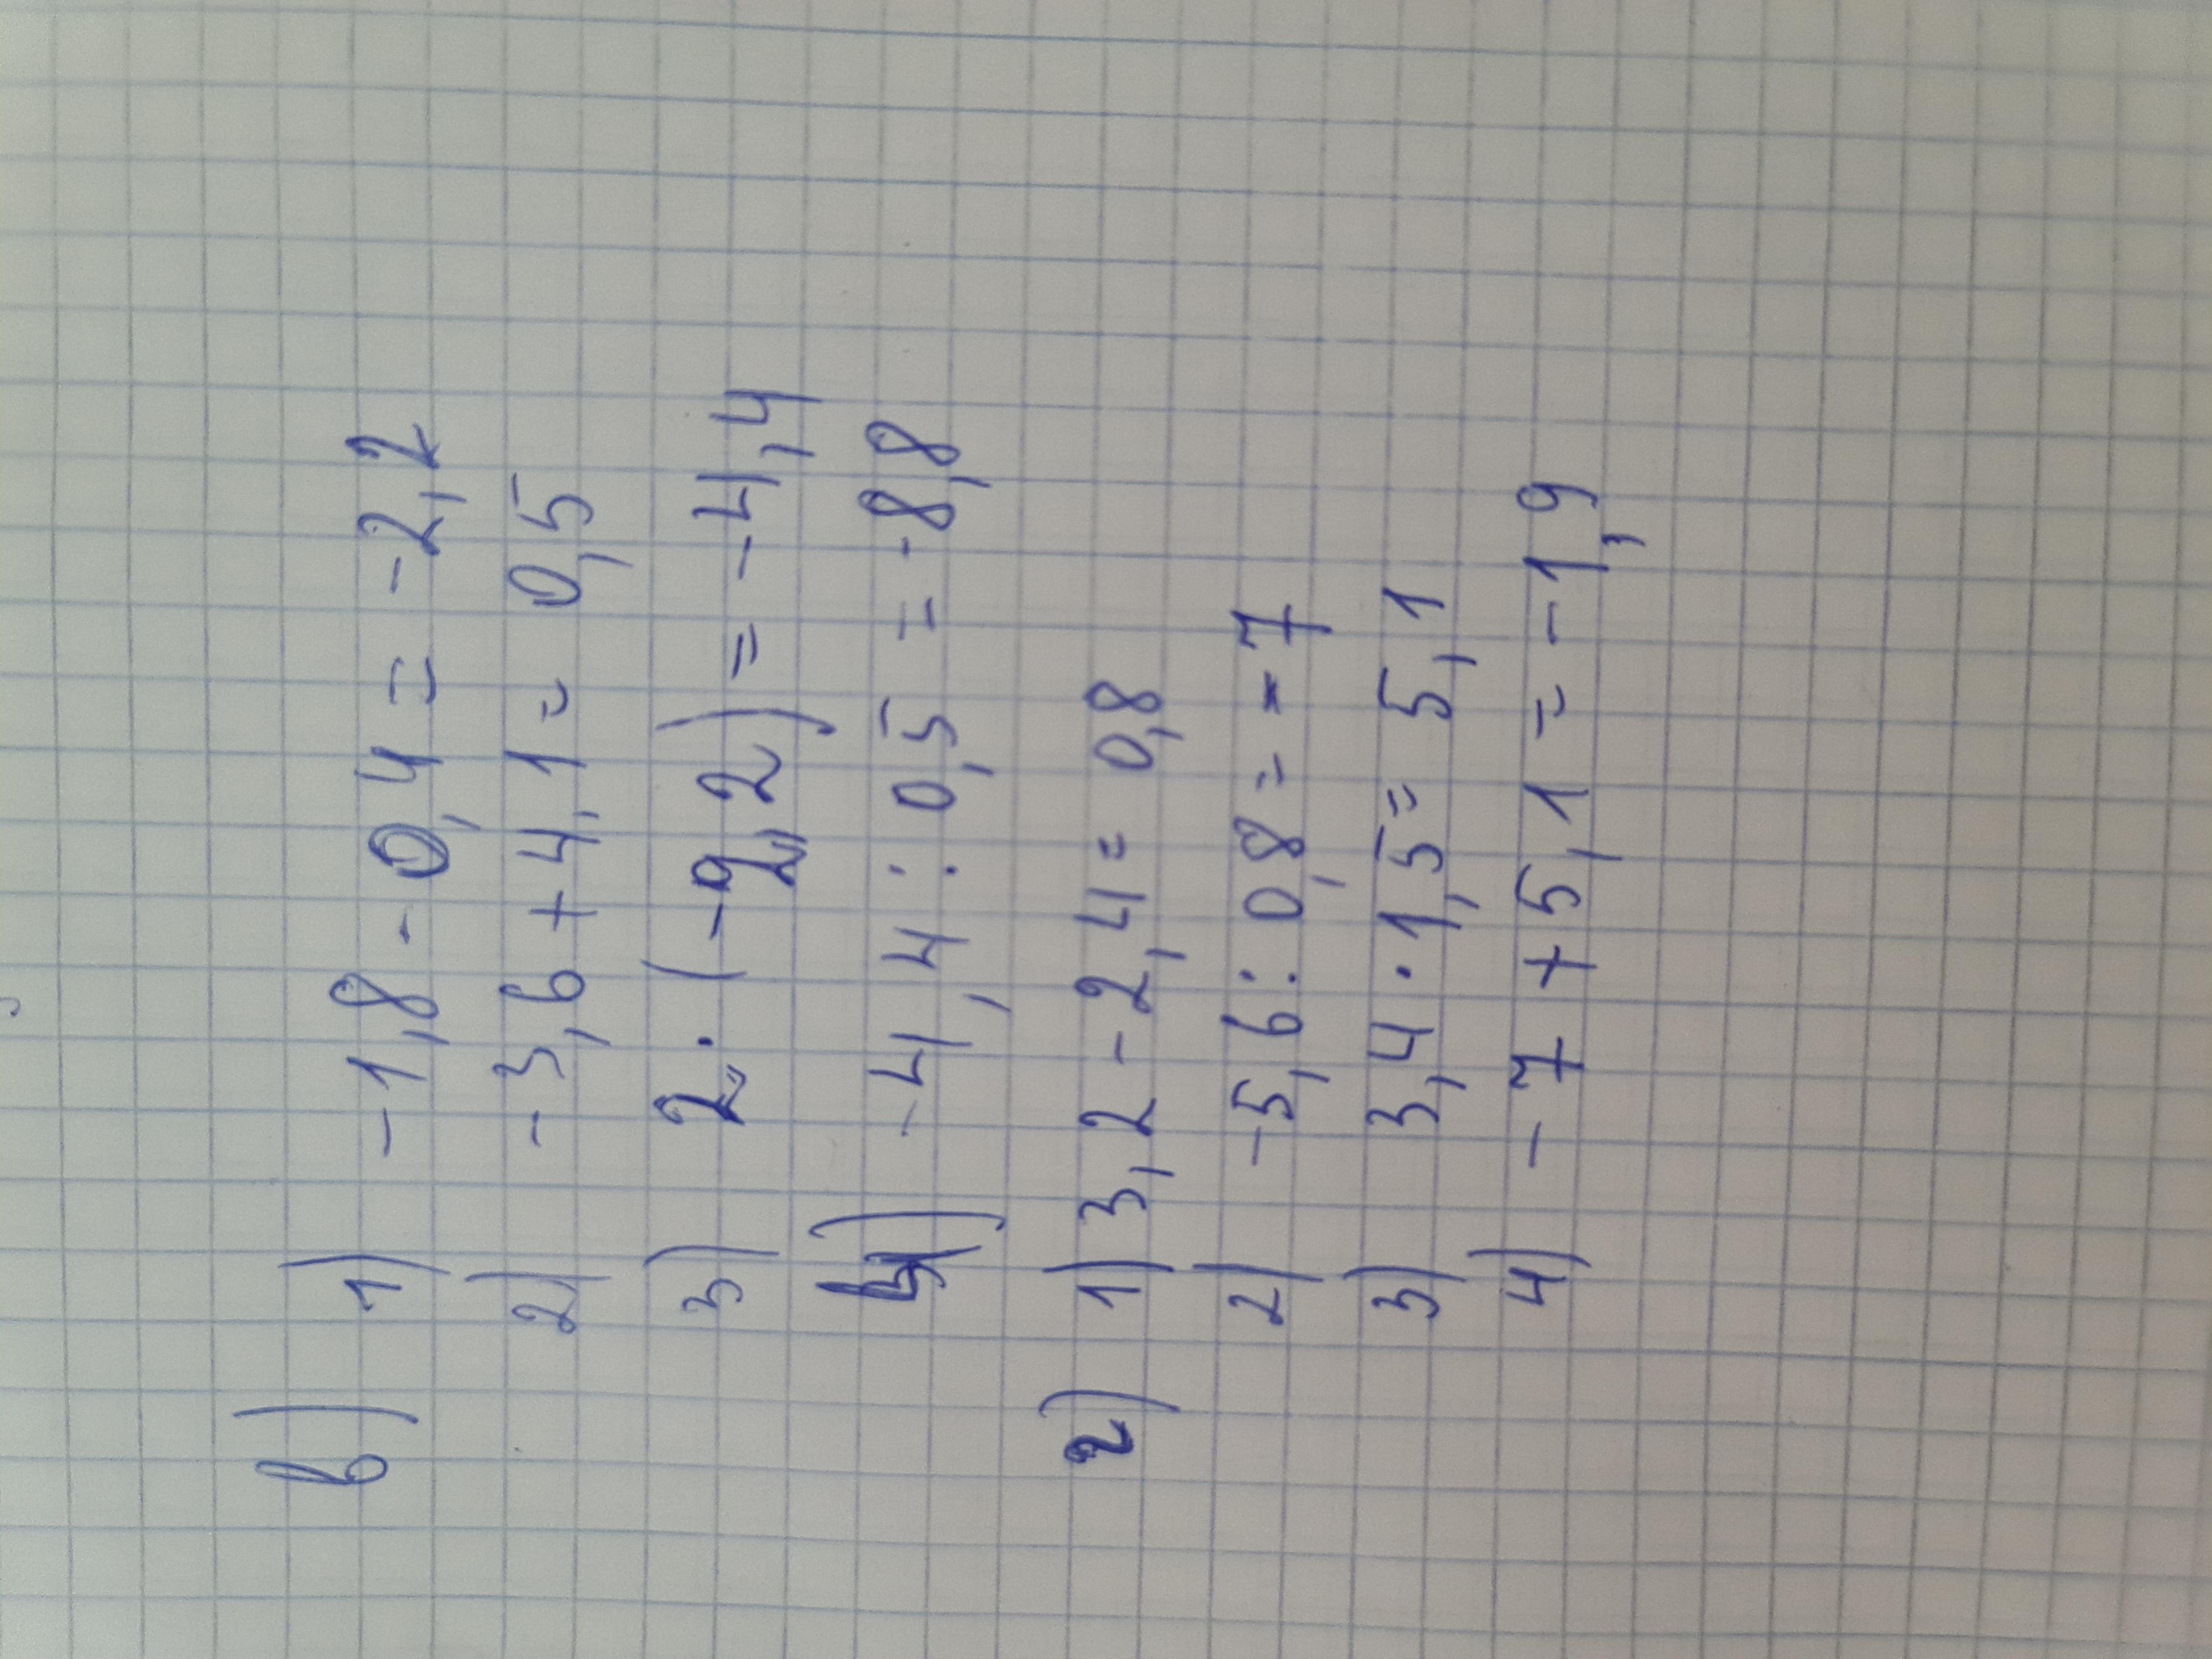 в) 1) -1,8 - 0,4 = -2,2
2) -3,6 + 4,1 = 0,5
3) 2 · (-2,2) = -4,4
4) -4,4 : 0,5 = -8,8
г) 1) 3,2 - 2,4 = 0,8
2) -5,6 : 0,8 = -7
3) 3,4 · 1,5 = 5,1
4) -7 + 5,1 = -1,9